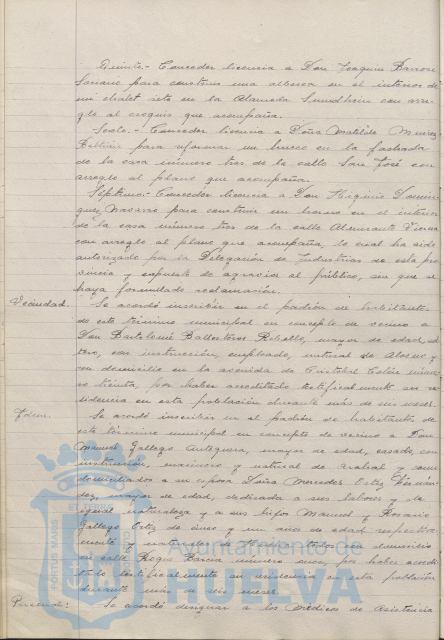 Quinto.- Conceder licencia a Don Joaquin Barroso
Soriano para construir una alberca en el interior de
un chalet sito en la Alameda Sundheim con arre-
glo al croquis que acompaña.
Sexto.- Conceder licencia a Doña Matilde
para reformar un hueco en la fachada
de la casa número tres de la calle San José con
arreglo al plano que acompaña.
Séptimo.- Conceder licencia a Don Higinio Domin-
guez Navarro para construir un horno en el interior
de la casa número tres de la calle Almirante
con arreglo al plano que acompaña, lo cual ha sido
autorizado por la Delegación de Industrias de esta pro-
vincia y expuesto de agravio al público, sin que se
haya formulado reclamación.
Vecindad. Se acordó inscribir en el padrón de habitantes
de este término municipal en concepto de vecino a
Don Bartolomé Ballesteros Rebollo, mayor de edad, sol-
tero, con instrucción, empleado, natural de Alosno, y
con domicilio en la avenida de Cristóbal Colón núme-
ro treinta, por haber acreditado testificalmente su re-
sidencia en esta población durante más de un meses.
Idem. Se acordó inscribir en el padrón de habitantes de
este término municipal en concepto de vecino a Don
Manuel Gallego Antequera, mayor de edad, casado, con
instrucción, marinero y natural de Arahal y como
domiciliados a su esposa Doña Mercedes Ortiz Fernán-
dez, mayor de edad, dedicada a sus labores y de
igual naturaleza y a sus hijos Manuel y Rosario
Gallego Ortiz de cinco y un años de edad respectiva-
mente y naturales de Huelva todos con domicilio
en calle Roque Barcia número once, por haber acredi-
tado testificalmente su residencia en esta población
durante más de seis meses.
Personal: Se acordó designar a los Médicos de Asistencia
PORTUS MARIS
Ayuntamiento de
HUELVA